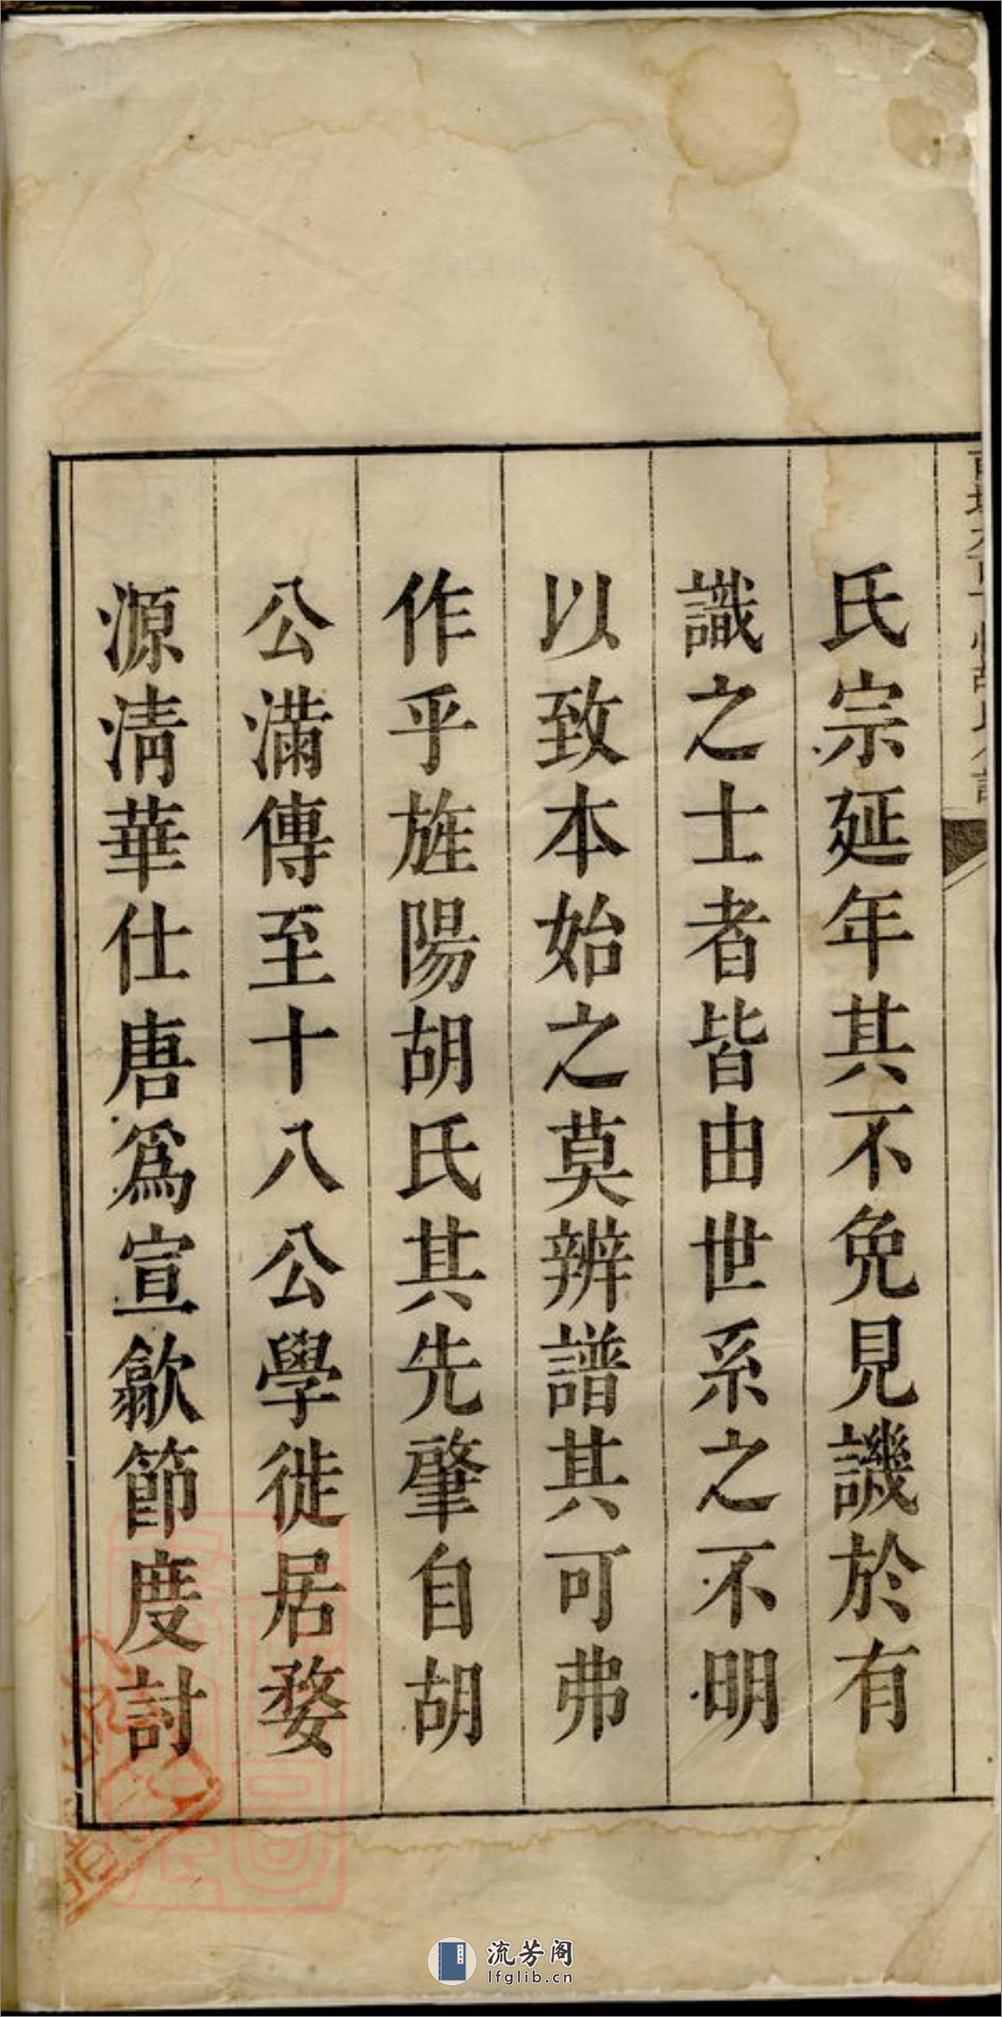 氏宗延年其不免見譏於有
識之士者皆由世系之不明
以致本始之莫辨譜其可弗
作乎旌陽胡氏其先肇自胡
公滿傳至十八公學徙居婺
源淸華仕唐爲宣歙節度討
流芳阁
lfglib.cn